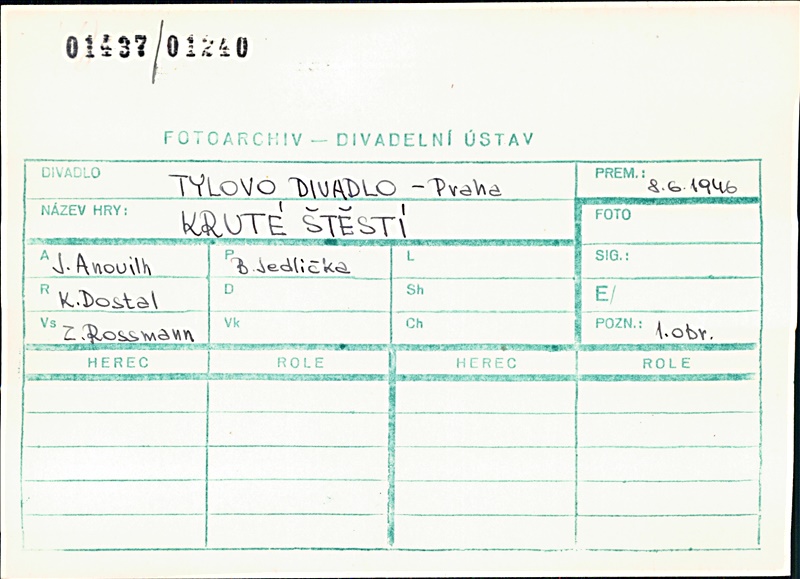 01437/01240
FOTOARCHIV — DIVADELNÍ ÚSTAV
DIVADLO TYLOVO DIVADLO - Praha
PREM.: 8.6.1946
NÁZEV HRY: KRUTÉ ŠTĚSTÍ
FOTO
A J. Anouilh P B. Jedlička L
SIG.:
R K. Dostal D Sh
E/
Vs Z. Rossmann Vk Ch
POZN.: 1. obr.
HEREC ROLE HEREC ROLE